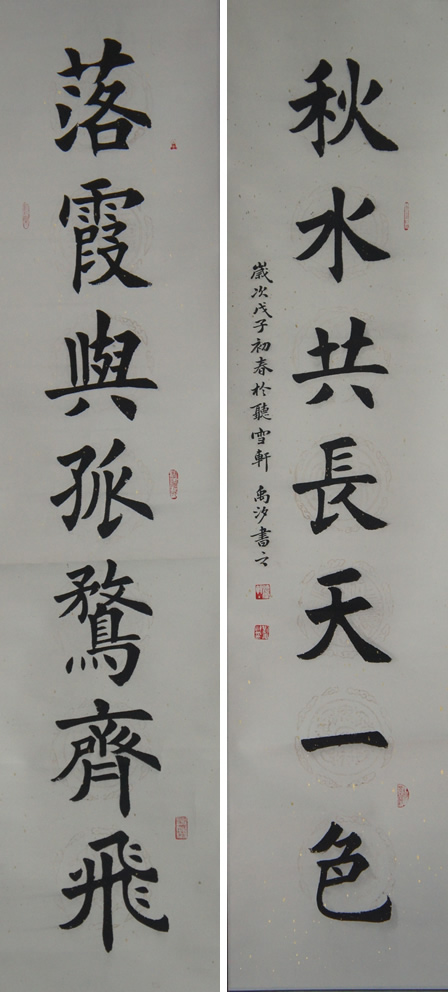 落霞與孤鶩齊飛
秋水共長天一色
嵗次戊子初春於聽雪軒 禹汐書之